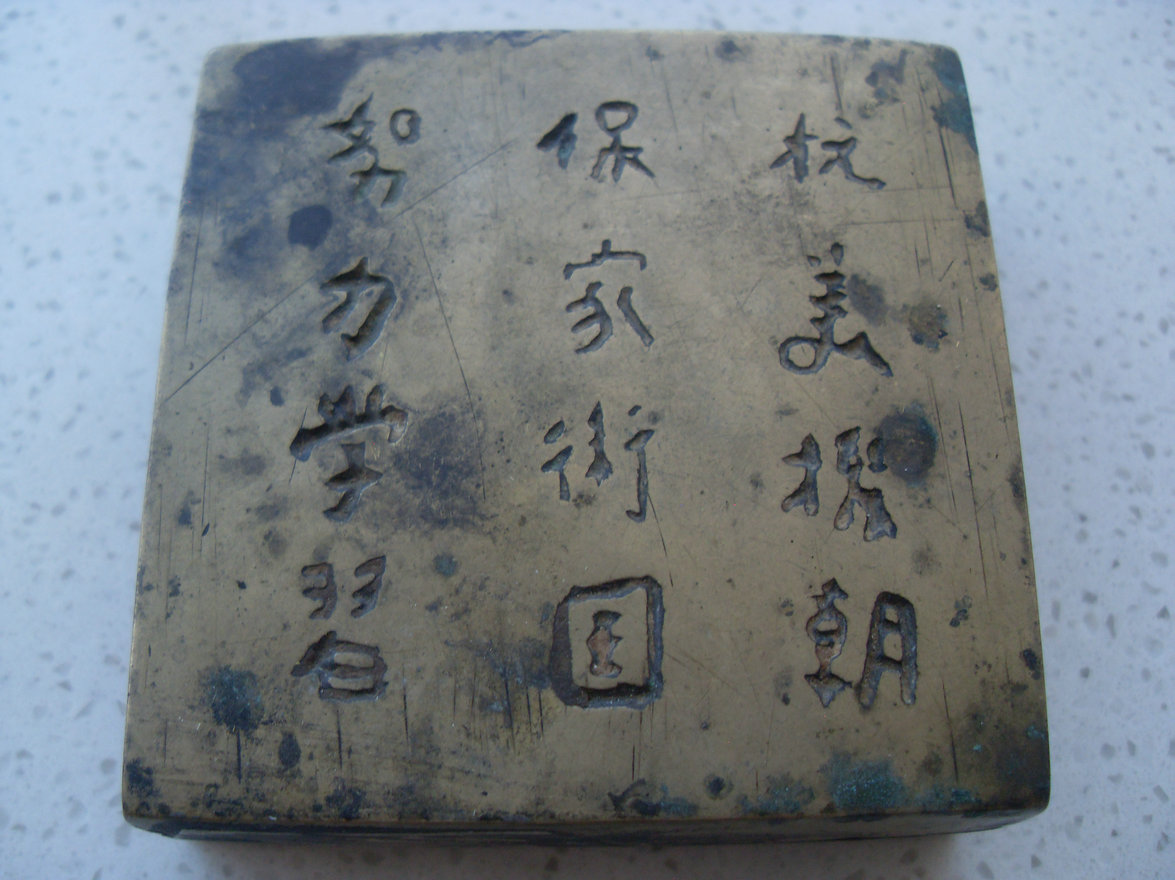 抗美援朝
保家衛囯
努力學習